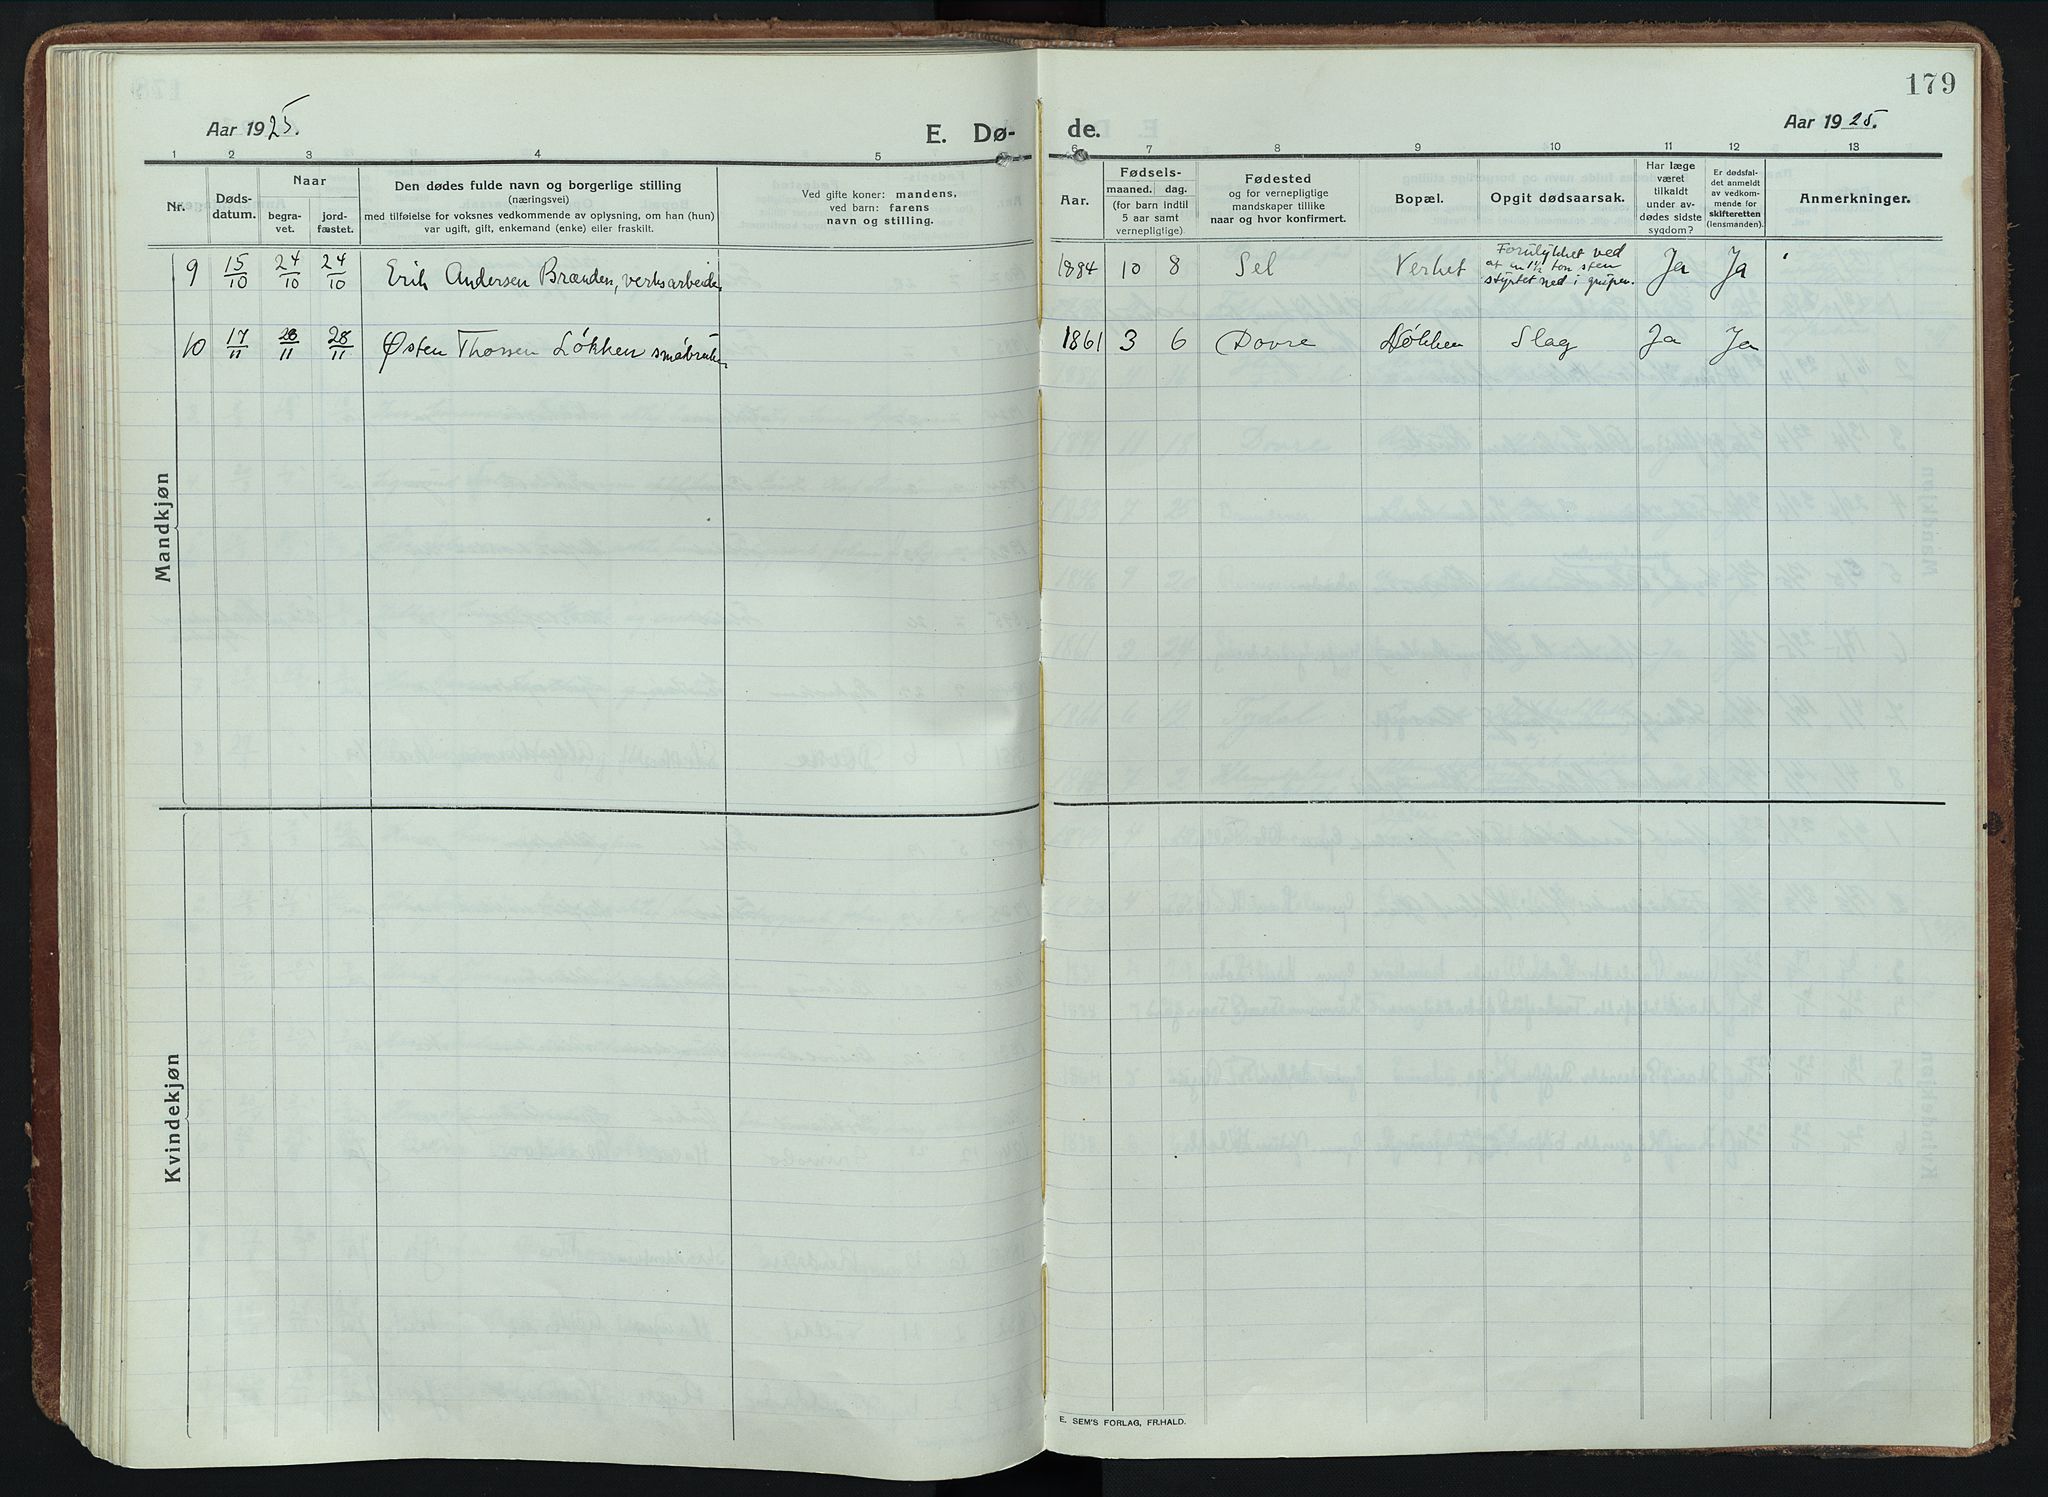 179
Aar 1925.
E. Dø-
de.
Aar 1925.
1 2 3 4 5 6 7 8 9 10 11 12 13
Nr.
Døds-
datum.
Naar
begra-
vet.
jord-
fæstet.
Den dødes fulde navn og borgerlige stilling
(næringsvei)
med tilføielse for voksnes vedkommende av oplysning, om han (hun)
var ugift, gift, enkemand (enke) eller fraskilt.
Ved gifte koner: mandens,
ved barn: farens
navn og stilling.
Aar.
Fødsels-
maaned. dag.
(for barn indtil
5 aar samt
vernepligtige)
Fødested
og for vernepligtige
mandskaper tillike
naar og hvor konfirmert.
Bopæl.
Opgit dødsaarsak.
Har læge
været
tilkaldt
under av-
dødes sidste
sygdom?
Er dødsfal-
det anmeldt
av vedkom-
mende for
skifteretten
(lensmanden).
Anmerkninger.
Mandkjøn
9 15/10 24/10 24/10 Erik Andersen Brænden, verksarbeider 1884 10 8 Sel Verket Forulykket ved
at en 1½ ton sten
styrtet ned i gruben. Ja Ja
10 17/11 28/11 28/11 Østen Thorsen Løkken småbruker 1861 3 6 Dovre Løkken Slag Ja Ja
Kvindekjøn
E. SEM'S FORLAG, FR.HALD.